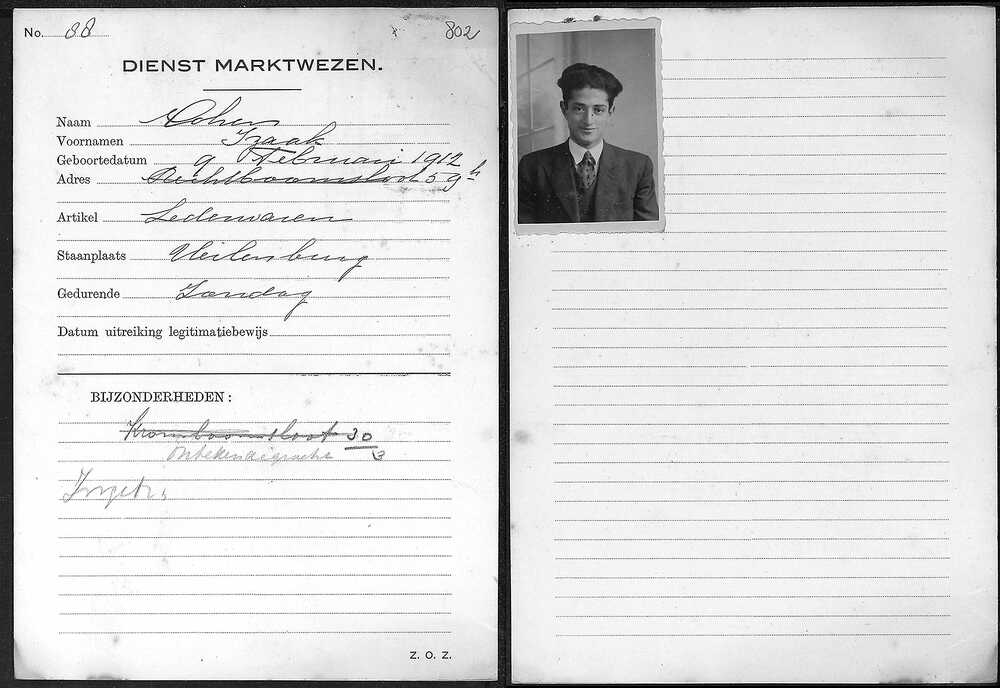 No. 88 802
DIENST MARKTWEZEN.
Naam Cohen
Voornamen Izaak
Geboortedatum 9 Februari 1912
Adres Rechtboomsloot 59 h
Artikel Lederwaren
Staanplaats Uilenburg
Gedurende Zondag
Datum uitreiking legitimatiebewijs
BIJZONDERHEDEN:
Kromboomsloot 30
3
Z. O. Z.